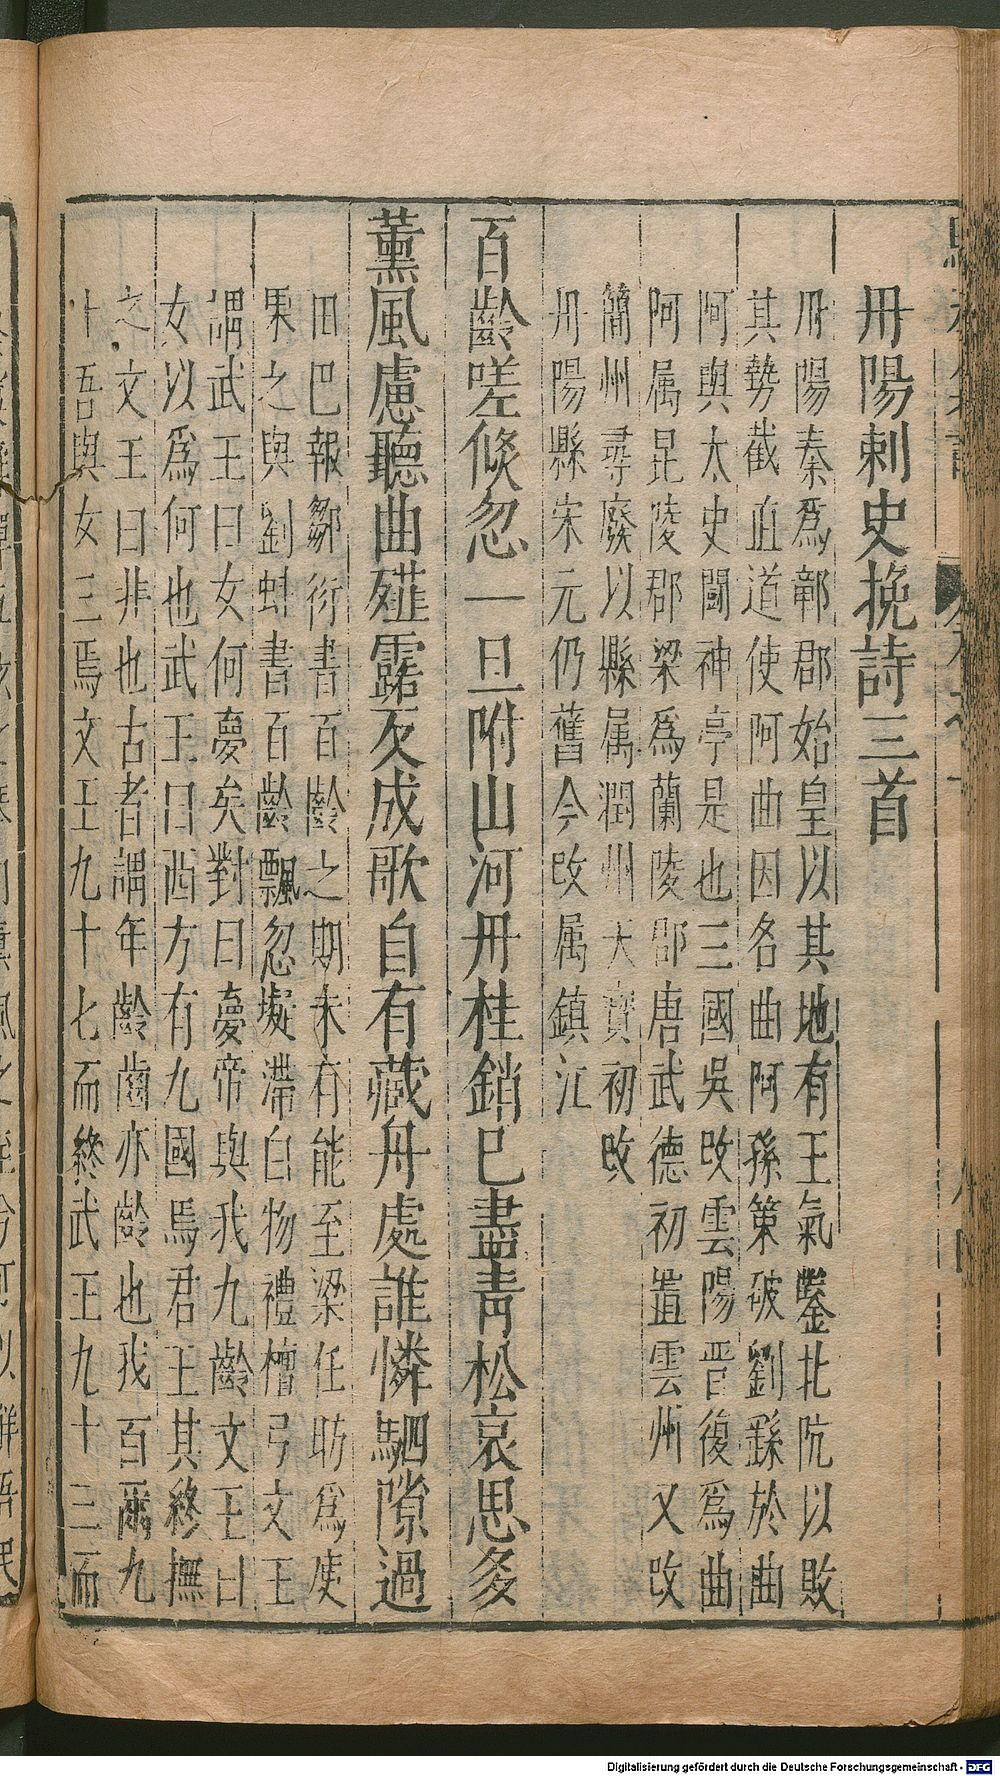 丹陽刺史挽詩三首
丹陽秦爲鄣郡始皇以其地有王氣鑿北阬以敗
其勢截直道使阿曲因名曲阿孫策破劉繇於曲
阿與太史鬪神亭是也三國吳改雲陽晉復爲曲
阿属昆陵郡梁爲蘭陵郡唐武德初置雲州又改
簡州尋廢以縣属潤州天寶初改
丹陽縣宋元仍舊今改属鎮江
百齡嗟倐忽一旦附山河丹桂銷已盡靑松哀思多
薰風慮聽曲薤露反成歌自有藏舟處誰憐駟隙過
田巴報鄒衍書百齡之期未有能至梁任昉爲庾
杲之與劉蛙書百齡飄忽凝滯自物禮檀弓文王
謂武王曰女何夢矣對曰夢帝與我九齡文王曰
女以爲何也武王曰西方有九國焉君王其終撫
之文王曰非也古者謂年齡齒亦齡也我百爾九
十吾與女三焉文王九十七而終武王九十三而
Digitalisierung gefördert durch die Deutsche Forschungsgemeinschaft - DFG